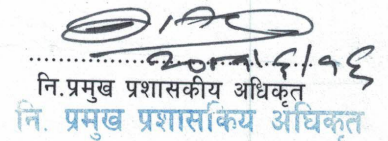 नि.प्रमुख प्रशासकीय अधिकृत
नि. प्रमुख प्रशासकिय अधिकृत